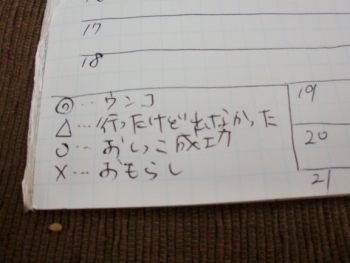 17
18
◎‥ウンコ
△‥行ったけどねなかった
○‥おしっこ成功
×…おもらし
19
20
21